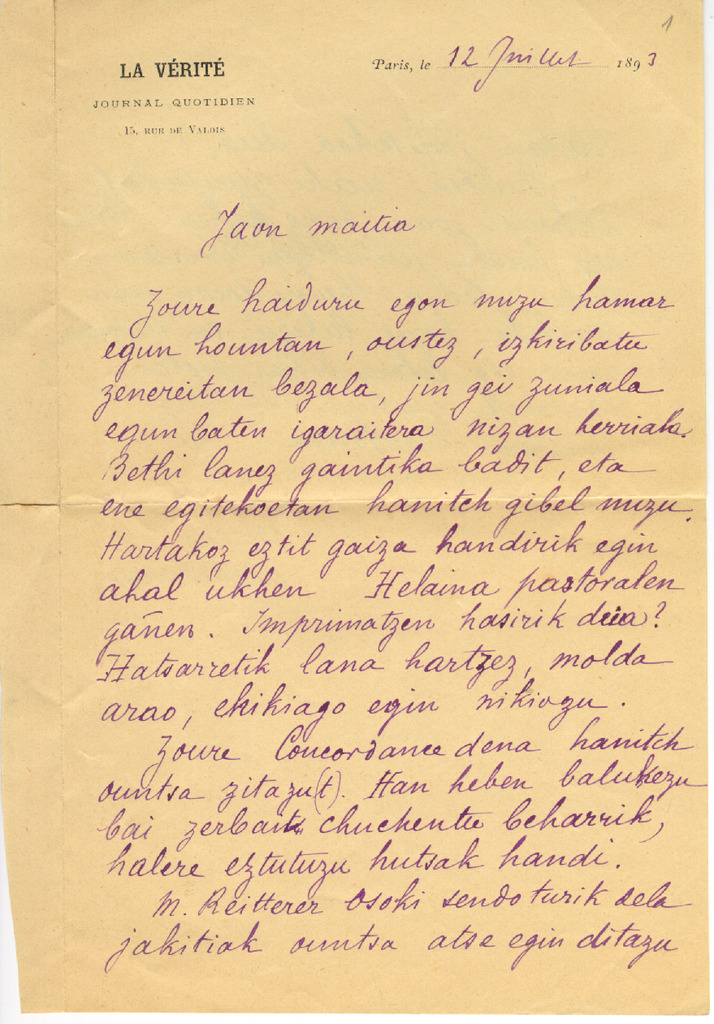 1
LA VÉRITÉ
JOURNAL QUOTIDIEN
15, RUE DE VALOIS
Paris, le 12 Juillet 1893
Jaon maitia
Zoure haiduru egon nuzu hamar
egun hountan, oustez, izkiribatu
zenereitan bezala, jin gei zuniala
egun baten igaraitera nizan herriala.
Bethi lanez gaintika badit, eta
ene egitekoetan hanitch gibel nuzu.
Hartakoz eztit gaiza handirik egin
ahal ukhen Helaina pastoralen
gañen. Imprimatzen hasirik deia?
Hatsarretik lana hartzez, molda
arao, ehikiago egin nikiozu.
Zoure Concordance dena hanitch
ountsa zitazu(t). Han heben balukezu
bai zerbait chuchentu beharrik,
halere eztutuzu hutsak handi.
M. Reitterer osoki sendoturik dela
jakitiak ountsa atse egin ditazu